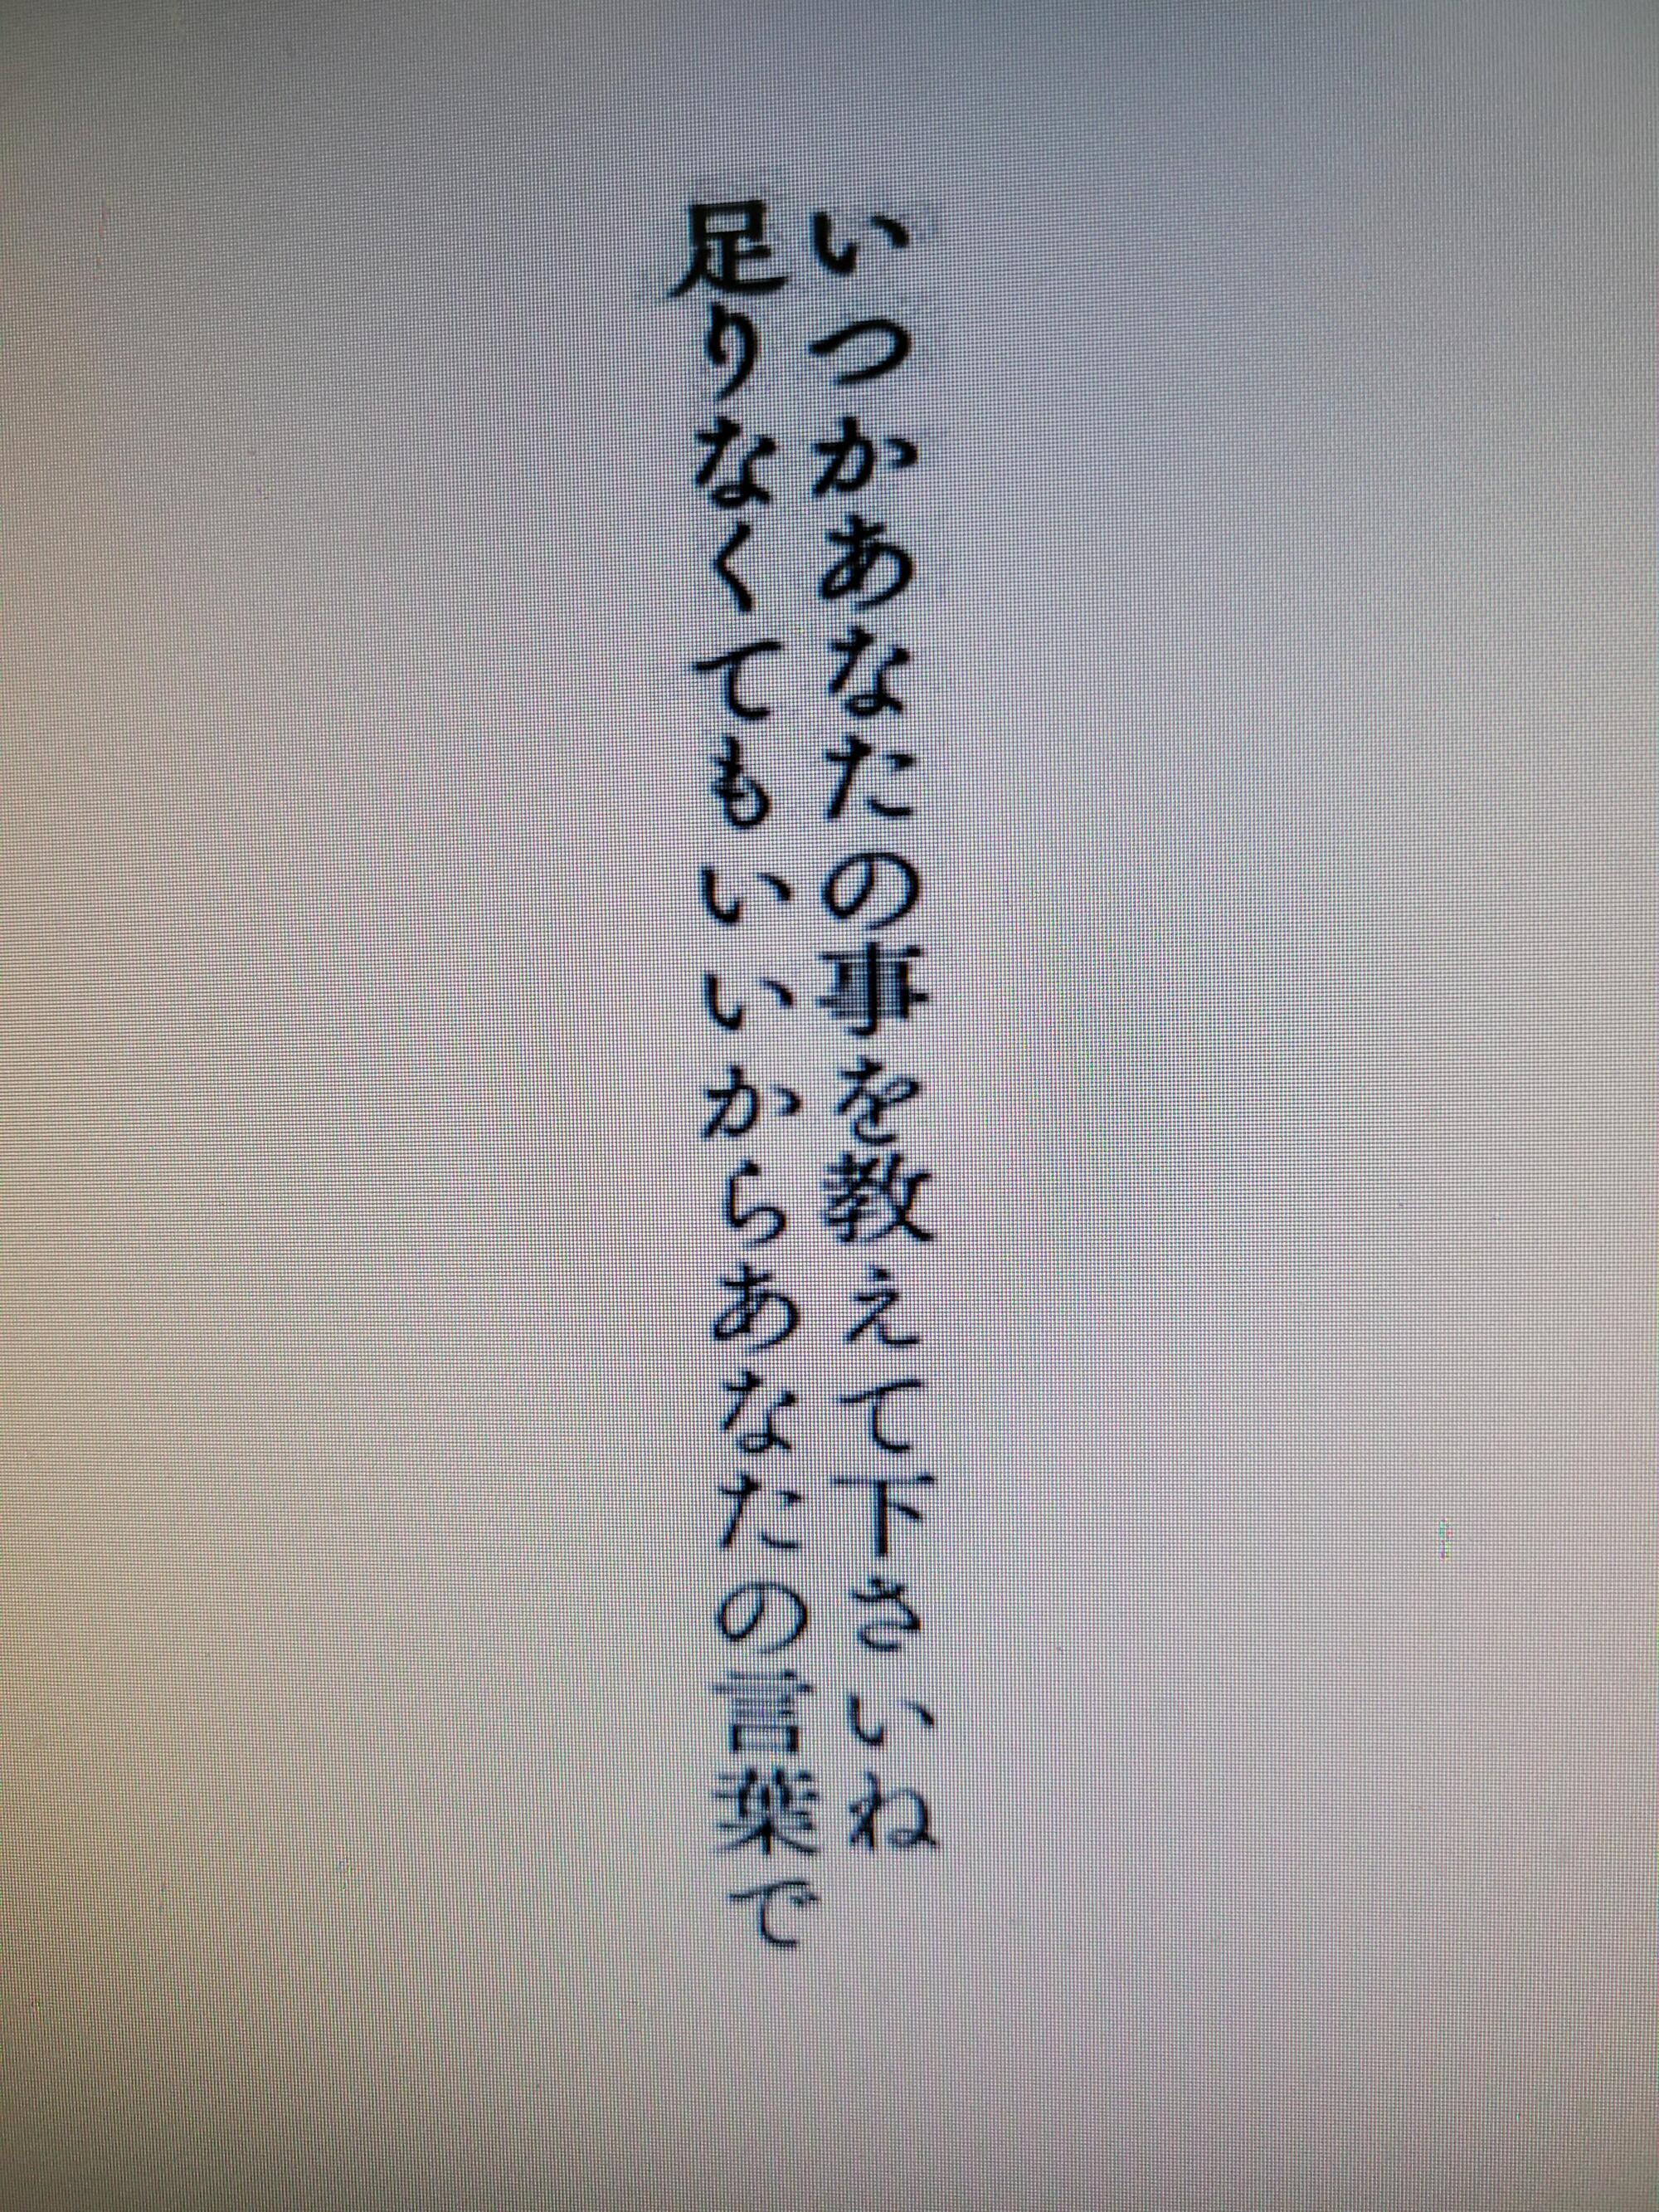 いつかあなたの事を教えて下さいね
足りなくてもいいからあなたの言葉で